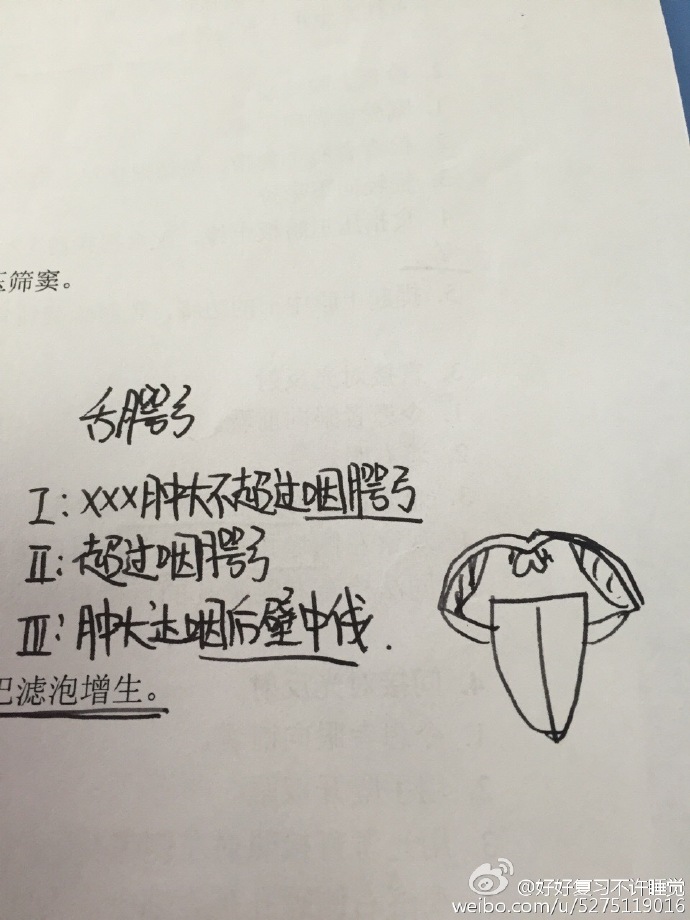 压筛窦。
舌腭弓
I：XXX肿大不超过咽腭弓
II：超过咽腭弓
III：肿大达咽后壁中线.
巴滤泡增生。
@好好复习不许睡觉
weibo.com/u/5275119016